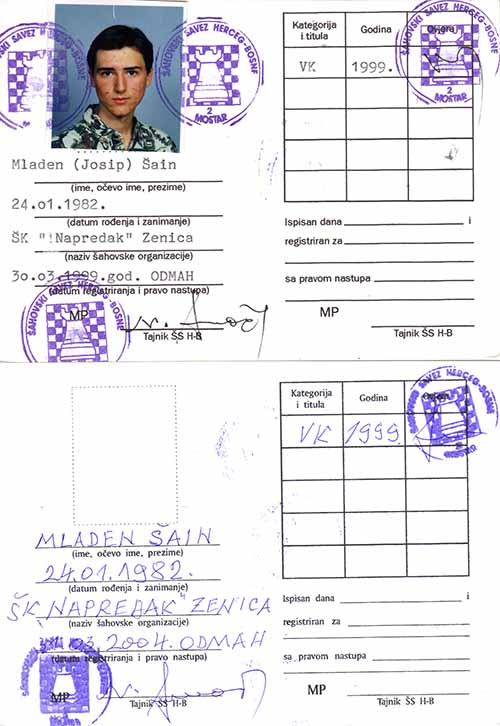 ŠAHOVSKI SAVEZ HERCEG-BOSNE
2
MOSTAR
ŠAHOVSKI SAVEZ HERCEG-BOSNE
2
MOSTAR
Mladen (Josip) Šain
(ime, očevo ime, prezime)
24.01.1982.
(datum rođenja i zanimanje)
ŠK "Napredak" Zenica
(naziv šahovske organizacije)
30.03.1999.god. ODMAH
(datum registriranja i pravo nastupa)
ŠAHOVSKI SAVEZ HERCEG-BOSNE
MP
Tajnik ŠS H-B
Kategorija i titula
Godina
Ovjera
VK
1999.
2
MOSTAR
Ispisan dana i
registriran za
sa pravom nastupa
MP
Tajnik ŠS H-B
MLADEN ŠAIN
(ime, očevo ime, prezime)
24.01.1982.
(datum rođenja i zanimanje)
ŠK "NAPREDAK" ZENICA
(naziv šahovske organizacije)
03.2004. ODMAH
(datum registriranja i pravo nastupa)
MP
Tajnik ŠS H-B
Kategorija i titula
Godina
Ovjera
VK
1999.
ŠAHOVSKI SAVEZ HERCEG-BOSNE
2
MOSTAR
Ispisan dana i
registriran za
sa pravom nastupa
MP
Tajnik ŠS H-B